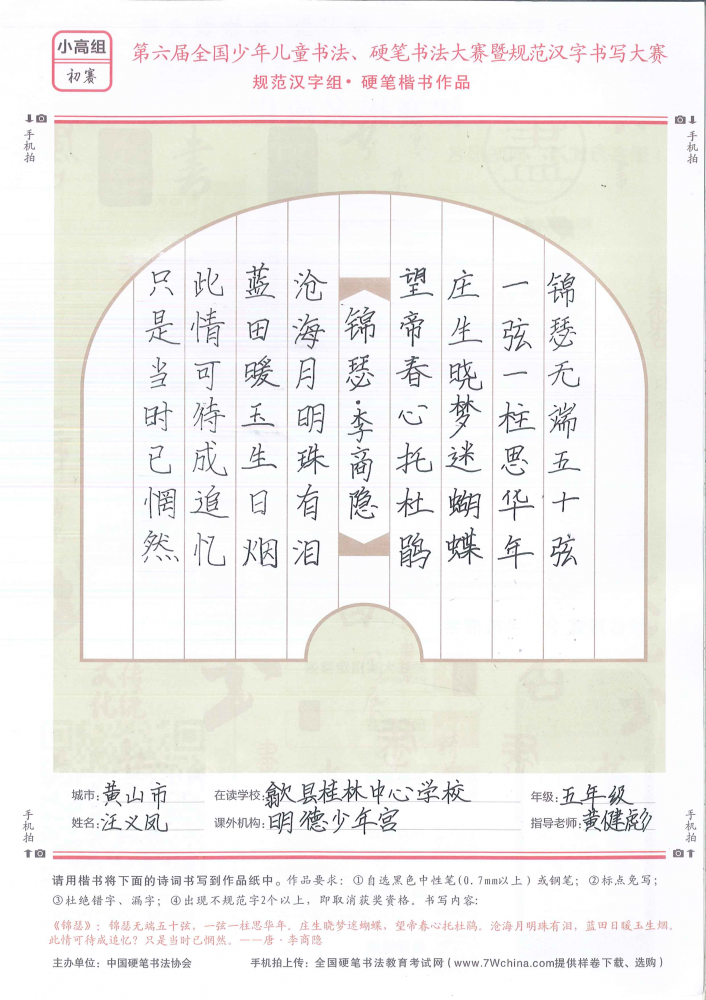 小高组
初赛
第六届全国少年儿童书法、硬笔书法大赛暨规范汉字书写大赛
规范汉字组·硬笔楷书作品
手机拍
手机拍
锦瑟无端五十弦
一弦一柱思华年
庄生晓梦迷蝴蝶
望帝春心托杜鹃
锦瑟·李商隐
沧海月明珠有泪
蓝田日暖玉生烟
此情可待成追忆
只是当时已惘然
城市:黄山市 在读学校:歙县桂林中心学校 年级:五年级
姓名:汪义凤 课外机构:明德少年宫 指导老师:黄健彪
手机拍
手机拍
请用楷书将下面的诗词书写到作品纸中。作品要求:①自选黑色中性笔(0.7mm以上)或钢笔;②标点免写;
③杜绝错字、漏字;④出现不规范字2个以上,即取消获奖资格。书写内容:
《锦瑟》:锦瑟无端五十弦,一弦一柱思华年。庄生晓梦迷蝴蝶,望帝春心托杜鹃。沧海月明珠有泪,蓝田日暖玉生烟。
此情可待成追忆?只是当时已惘然。——唐·李商隐
主办单位:中国硬笔书法协会 手机拍上传:全国硬笔书法教育考试网(www.7Wchina.com提供样卷下载、选购)